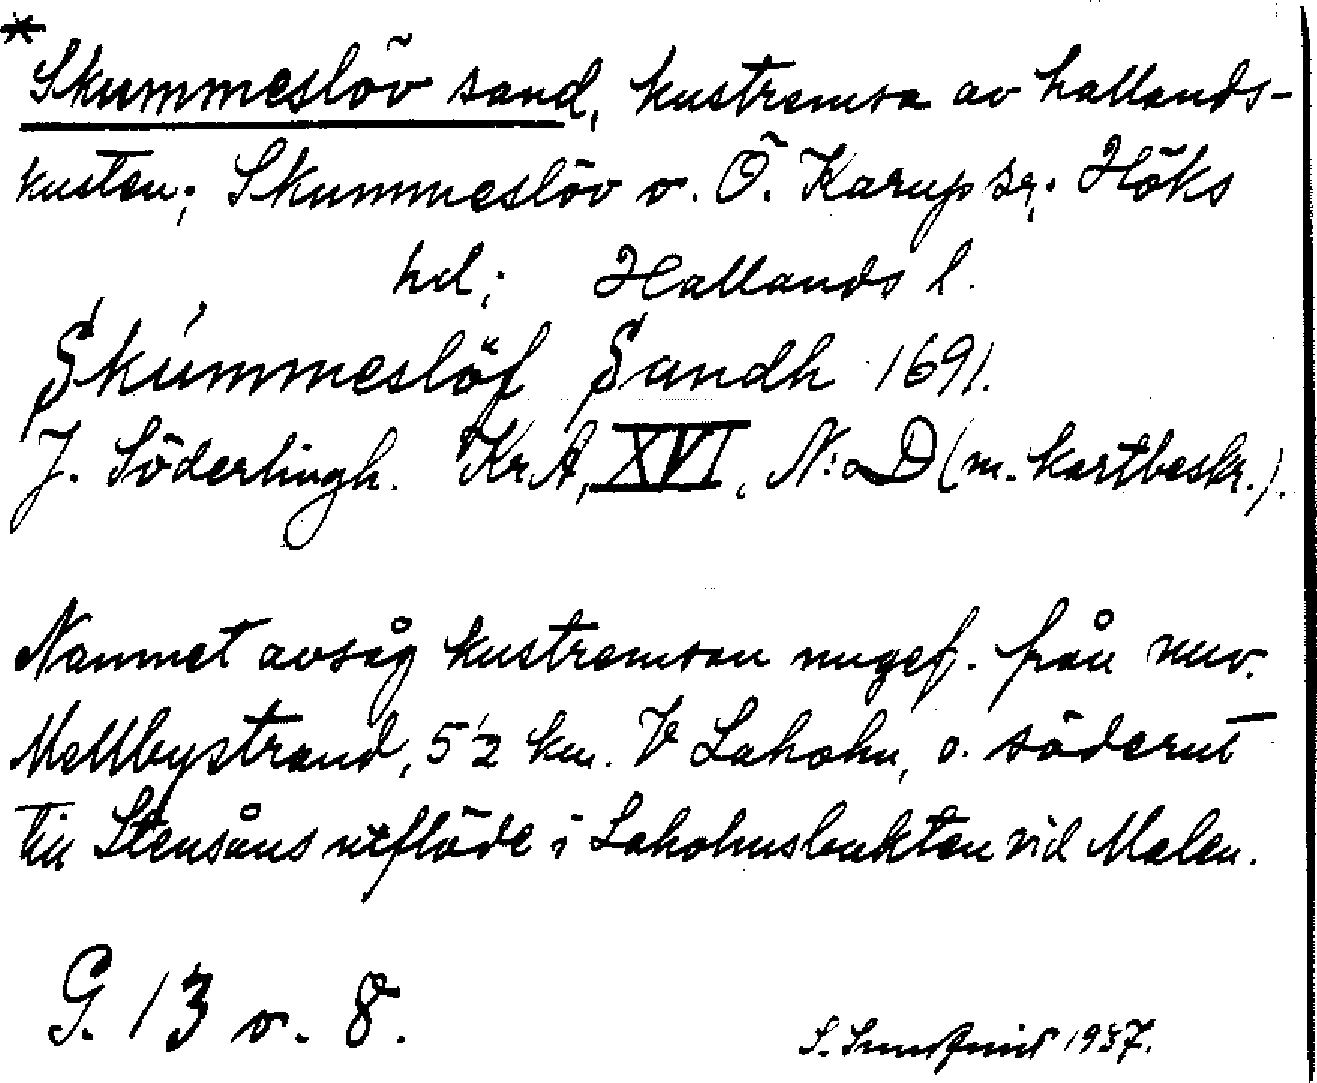 * Skummeslöv sand, kustremsa av hallands-
kusten; Skummeslöv o. Ö. Karup sr; Höks
hd; Hallands l.
Skúmmeslöf Sandh 1691.
J. Söderlingh. KrA, XVI, N:o D (m. kartbeskr.).
Namnet avsåg kustremsan ungef. från nuv.
Mellbystrand, 5 1/2 km. V Laholm, o. söderut
till Stensåns utflöde i Laholmsbukten vid Malen.
G. 13 o. 8.
S. 1937.